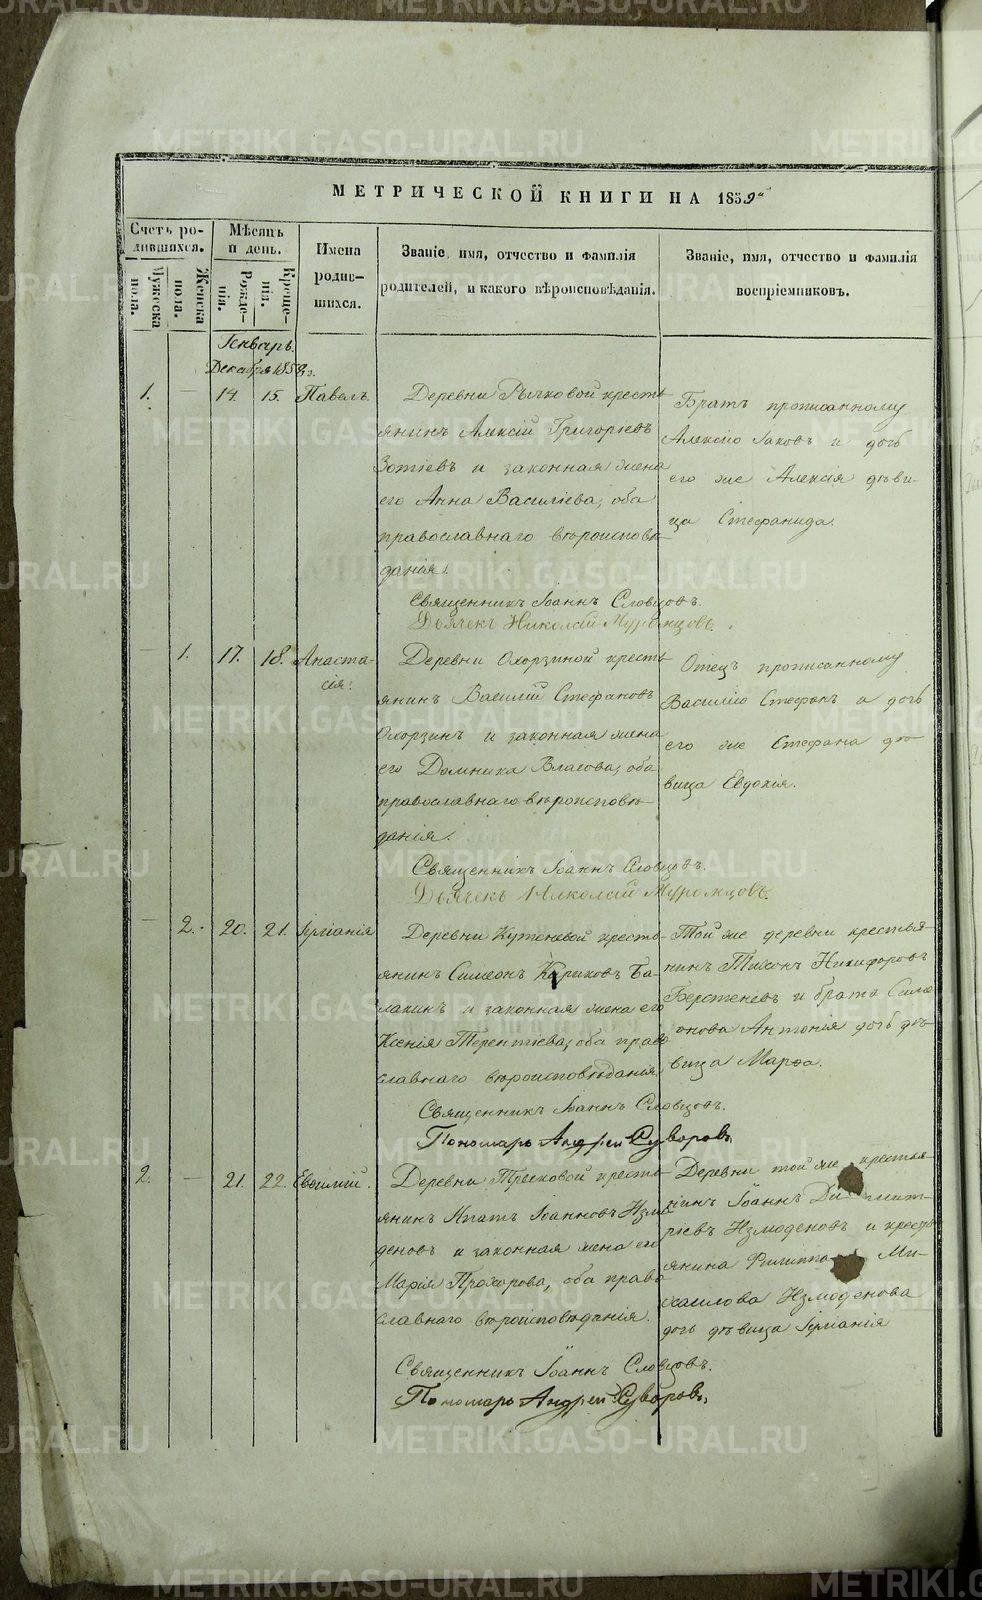 МЕТРИЧЕСКОЙ КНИГИ НА 1859й
Счетъ ро-
дившихся.
Мужеска
пола.
Женска
пола.
Мѣсяцъ
и день.
Рожде-
нія.
Креще-
нія.
Имена
родив-
шихся.
Званіе, имя, отчество и фамилія
родителей, и какого вѣроисповѣданія.
Званіе, имя, отчество и фамилія
воспріемниковъ.
Генварь.
Декабря 1858 г.
1. — 14. 15. Павелъ.
Деревни Рычковой кресть-
янинъ Алексій Григорьевъ
Зотіевъ и законная жена
его Анна Василіева, оба
православнаго вѣроисповѣ-
данія.
Священникъ Іоаннъ Словцовъ.
Дьячекъ Николай Муромцовъ.
Братъ прописанному
Алексію Іаковъ и дочь
его же Алексія дѣви-
ца Стефанида.
— 1. 17. 18. Анаста-
сія.
Деревни Охорзиной кресть-
янинъ Василій Стефановъ
Охорзинъ и законная жена
его Домника Власова, оба
православнаго вѣроисповѣ-
данія.
Священникъ Іоаннъ Словцовъ.
Дьячекъ Николай Муромцовъ.
Отецъ прописанному
Василію Стефанъ и дочь
его же Стефана дѣ-
вица Евдокія.
— 2. 20. 21. Іуліанія
Деревни Кутеневой кресть-
янинъ Симеонъ Ба-
лакинъ и законная жена его
Ксенія Терентіева, оба право-
славнаго вѣроисповѣданія.
Священникъ Іоаннъ Словцовъ.
Пономарь Андрей Суворовъ.
Той же деревни крестья-
нинъ Никифоровъ
Берстеневъ и брата Симе-
онова Антонія дочь дѣ-
вица Марѳа.
2. — 21. 22. Евѳимій.
Деревни Тресковой кресть-
янинъ Ипатъ Іоанновъ Измо-
деновъ и законная жена его
Марія Прохорова, оба право-
славнаго вѣроисповѣданія.
Священникъ Іоаннъ Словцовъ.
Пономарь Андрей Суворовъ.
Деревни той же крестья-
нинъ Іоаннъ Димит-
ріевъ Измоденовъ и кресть-
янина Филиппа Ми-
хаилова Измоденова
дочь дѣвица Іуліанія
METRIKI.GASO-URAL.RU